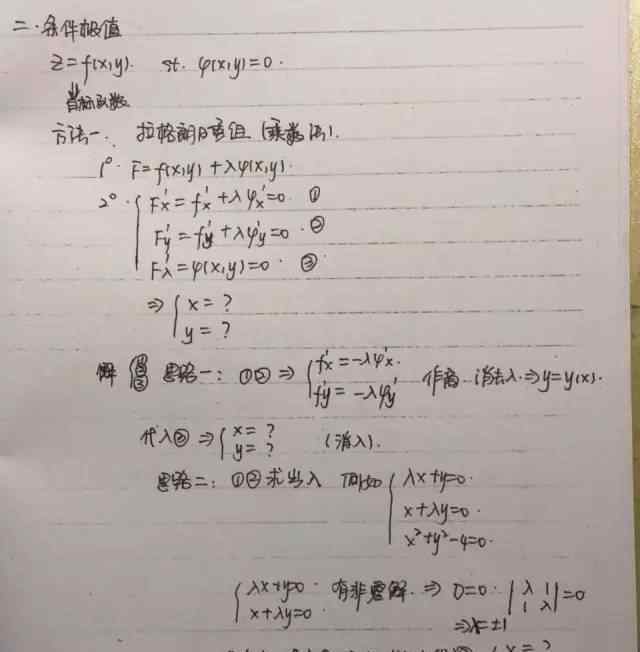 二.条件极值
z=f(x,y). st. φ(x,y)=0.
目标函数
方法一. 拉格朗日乘值(乘数法).
1° F=f(x,y)+λφ(x,y).
2° { F'x=f'x+λφ'x=0. ①
F'y=f'y+λφ'y=0. ②
F'λ=φ(x,y)=0. ③
⇒ { x=?
y=?
解 ①②③ 思路一:①② ⇒ { f'x=-λφ'x.
f'y=-λφ'y 作商.消去λ⇒y=y(x).
代入③⇒ { x=?
y=? (消λ).
思路二:①②求出λ 例如 { λx+y=0.
x+λy=0.
x²+y²-4=0.
{ λx+y=0. 有非零解.⇒ D=0. |λ 1|
x+λy=0. |1 λ|=0
⇒λ=±1
{ x=?